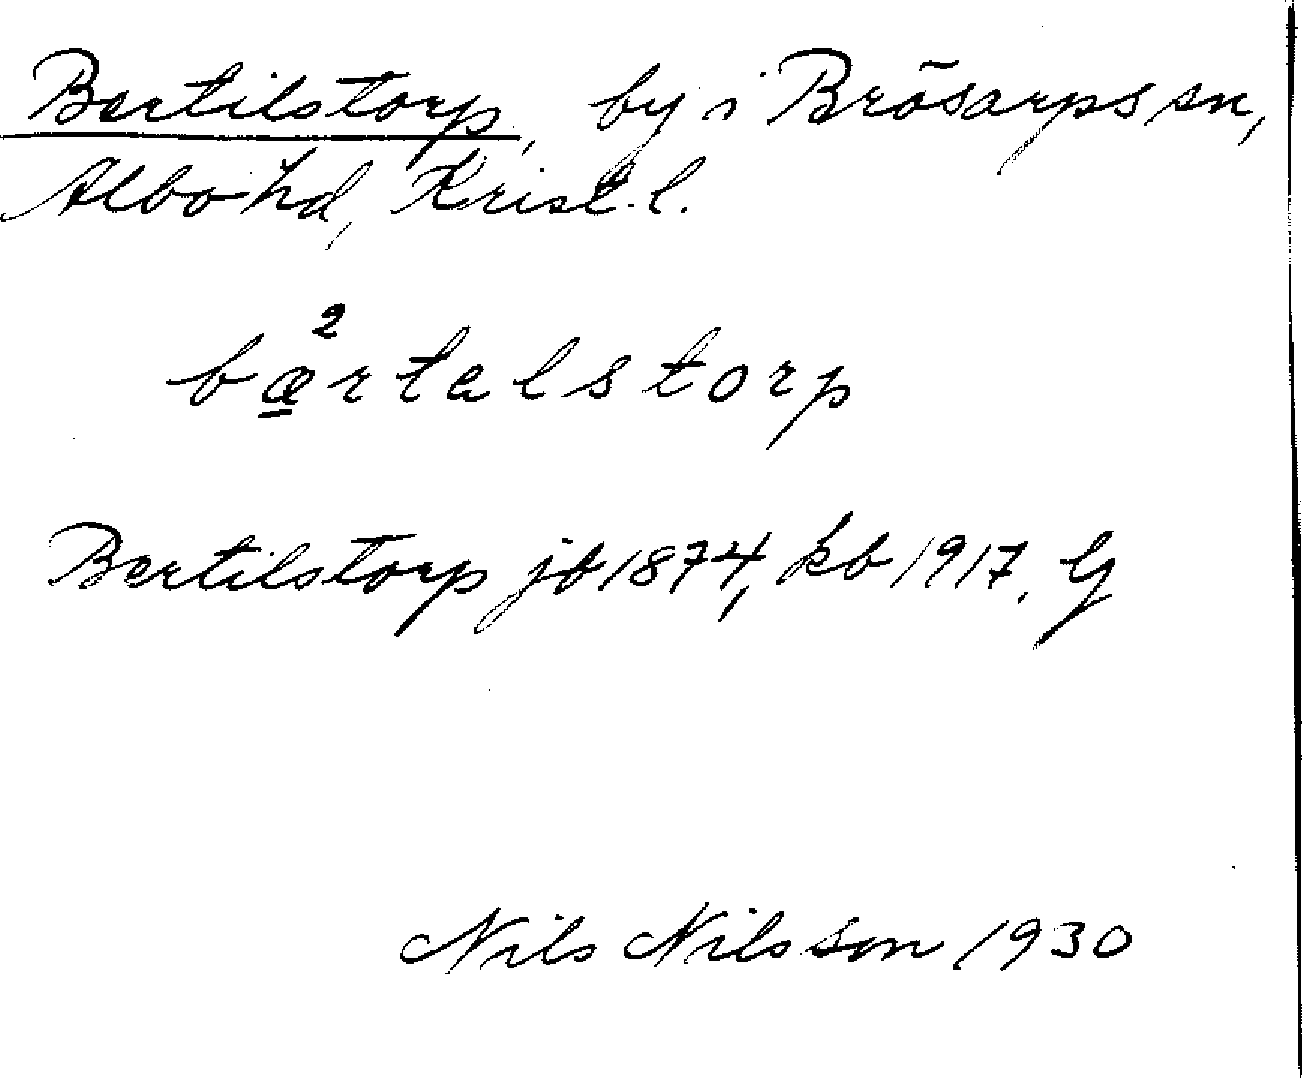 Bertilstorp, by i Brösarps sn,
Albo hd, Krist. l.
2
bærtalstorp
Bertilstorp jb 1874, kb 1917, G
Nils Nilsson 1930